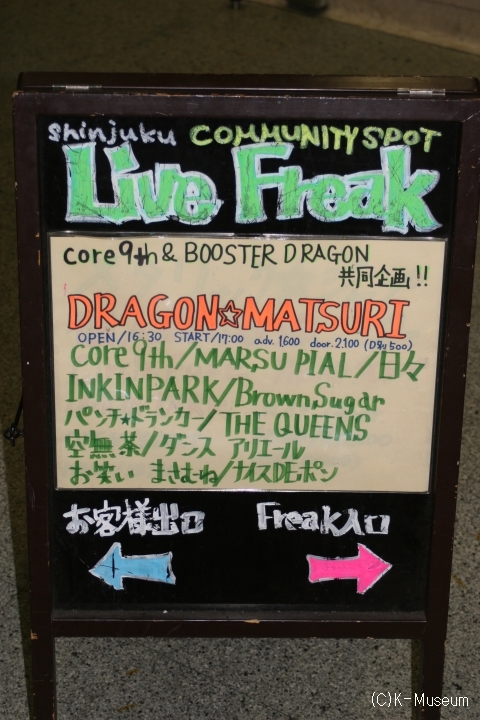 shinjuku COMMUNITY SPOT
Live Freak
core9th & BOOSTER DRAGON
共同企画!!
DRAGON☆MATSURI
OPEN/16:30 START/17:00 adv.1600 door.2.100 (D別500)
core9th/MARSU PIAL/日々
INKINPARK/Brown Sugar
パンチ★ドランカー/THE QUEENS
空無茶/ダンス アリエール
お笑い まさむね/ナイスDEポン
お客様出口 Freak入口
(C)K-Museum